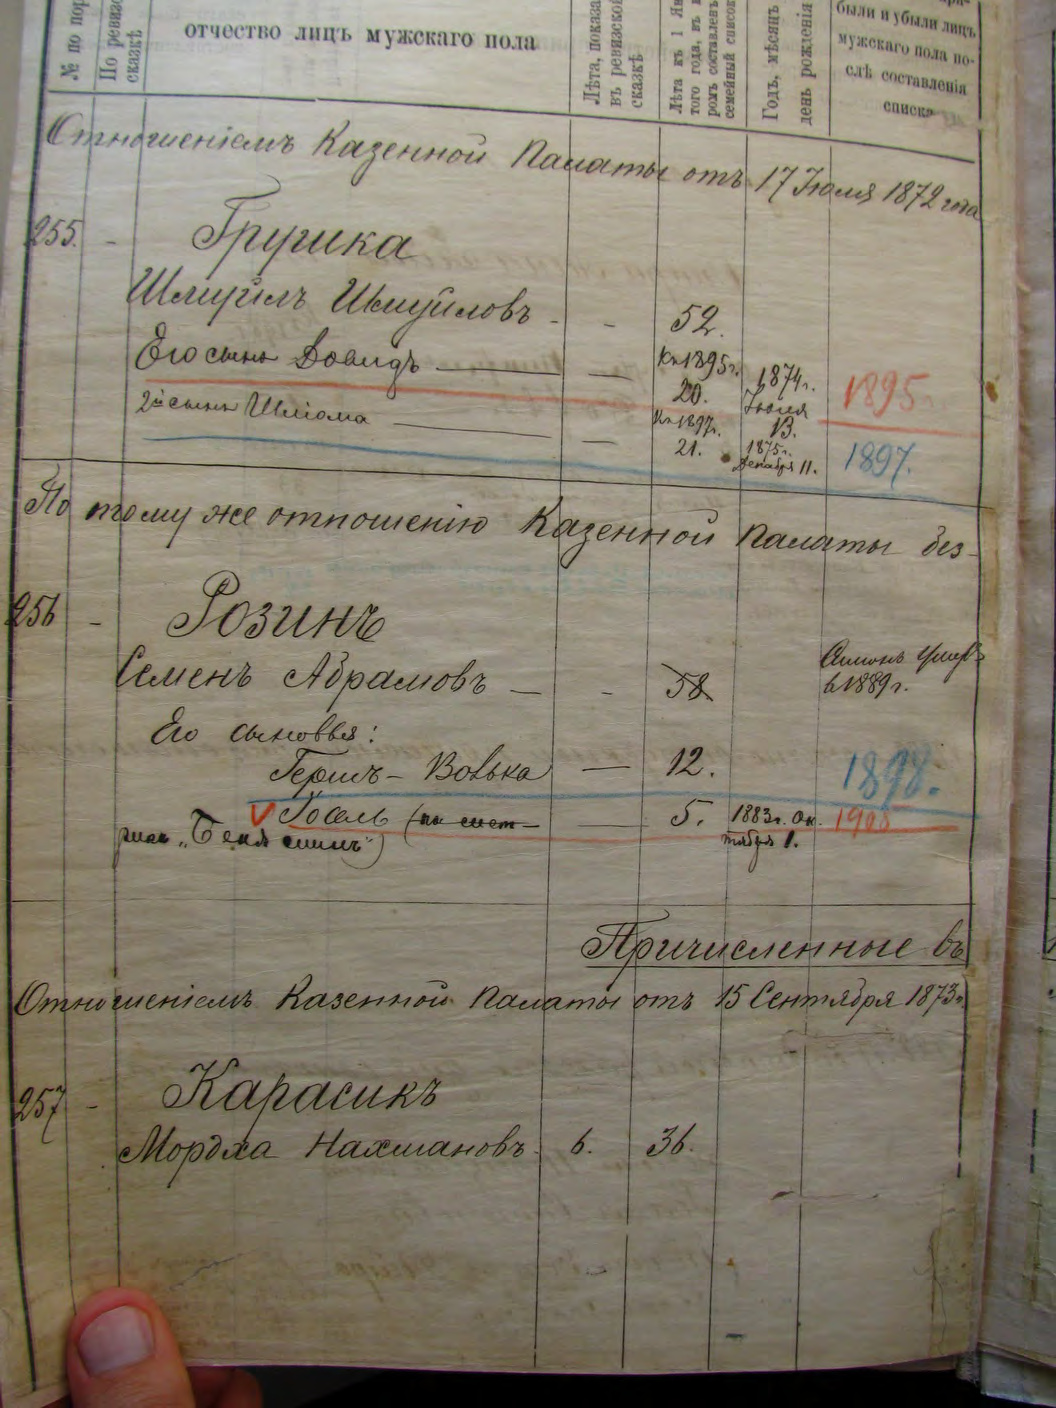 № по пор
По ревизс
сказкѣ
отчество лицъ мужскаго пола
Лѣта, показа
въ ревизской
сказкѣ
Лѣта къ 1 Ян
того года, въ к
ромъ составленъ
семейный список
Годъ, мѣсяцъ
день рожденія
были и убыли лицъ
мужскаго пола по-
слѣ составленія
списка
Отношеніемъ Казенной Палаты отъ 17 Іюля 1872 года
255. -
Шмуйлъ Шмуйловъ - - 52.
Его сынъ Довидъ — — Къ 1895 г. 20. 1874 г. Іюля 13. 1895
2й сынъ Шліома — — Къ 1897 г. 21. 1875 г. Декабря 11. 1897.
По тому же отношенію Казенной Палаты без-
256 - Розинъ
Семенъ Абрамовъ — - 58 умеръ
в 1889 г.
Его сыновья:
Гершъ-Вовька — 12. 1898.
V Іосель — 5. 1883 г. Ок
тября 1.
Причисленные въ
Отношеніемъ Казенной Палаты отъ 15 Сентября 1873 г.
257 - Карасикъ
Мордха Нахмановъ - 6. 36.